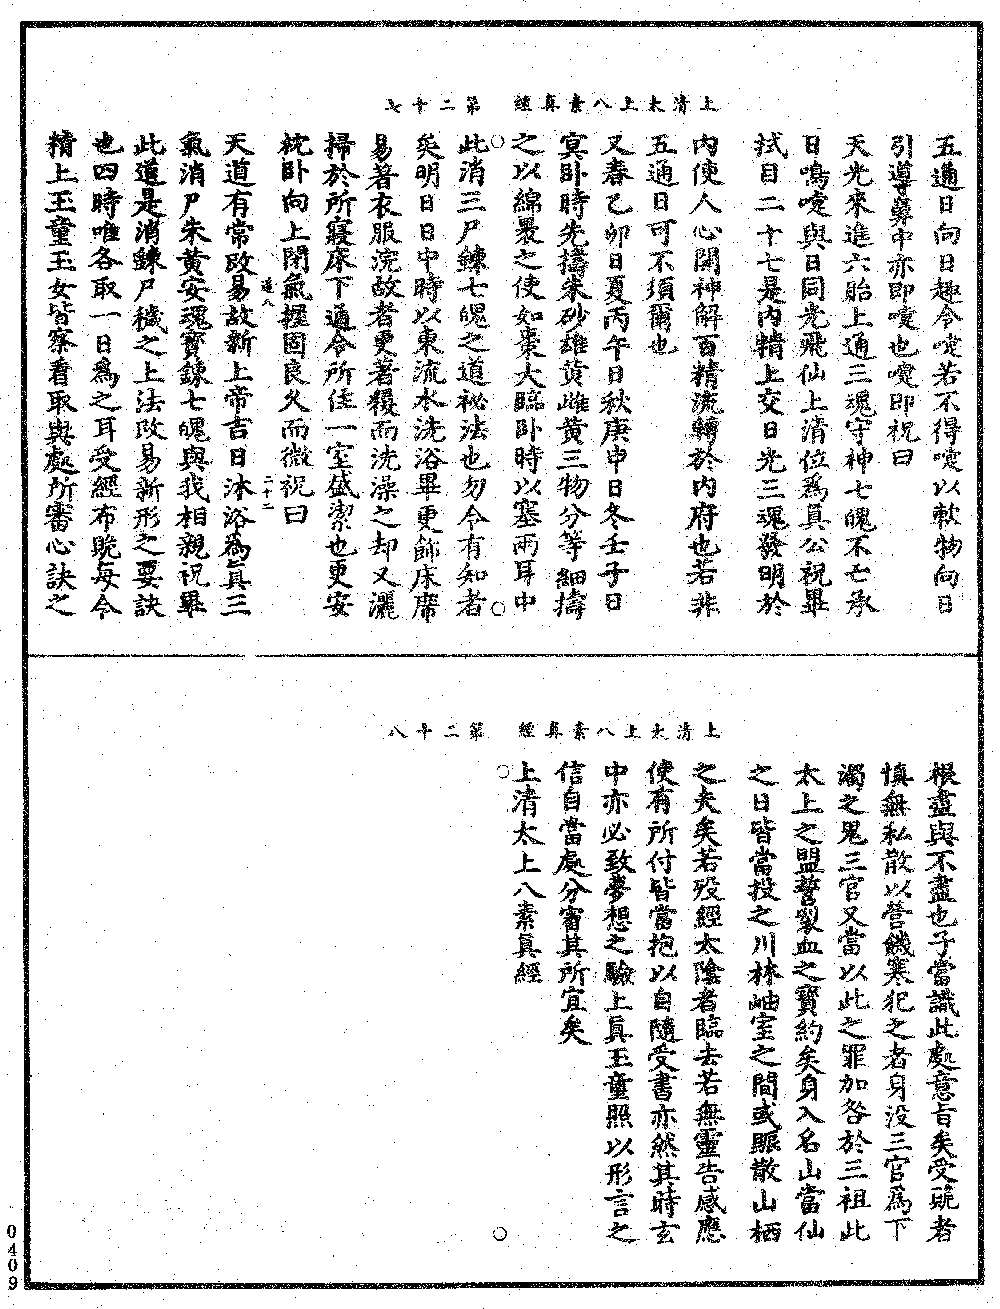 上清太上八素真經　第二十七
五通日向日趣令嚏若不得嚏以軟物向日
引導鼻中亦即嚏也嚏即祝曰
天光來進六胎上通三魂守神七魄不亡承
日鳴嚏與日同光飛仙上清位爲真公祝畢
拭目二十七是内精上交日光三魂發明於
内使人心開神解百精流轉於内府也若非
五通日可不須爾也
又春乙卯日夏丙午日秋庚申日冬壬子日
冥卧時先擣朱砂雄黄雌黄三物分等細擣
之以綿裹之使如棗大臨卧時以塞兩耳中
此消三尸鍊七魄之道祕法也勿令有知者
矣明日日中時以東流水洗浴畢更飾床席
易著衣服浣故者更著履而洗澡之却又灑
掃於所寢床下通令所住一室盛潔也更安
枕卧向上閉氣握固良久而微祝曰
道八　二十二
天道有常改易故新上帝吉日沐浴爲真三
氣消尸朱黄安魂寳鍊七魄與我相親祝畢
此道是消鍊尸穢之上法改易新形之要訣
也四時唯各取一日爲之耳受經布貺每令
精上玉童玉女皆察看取與處所審心訣之
上清太上八素真經　第二十八
根盡與不盡也子當識此處意旨矣受貺者
慎無私散以營饑寒犯之者身没三官爲下
濁之鬼三官又當以此之罪加咎於三祖此
太上之盟誓製血之寳約矣身入名山當仙
之日皆當投之川林岫室之間或賑散山栖
之夫矣若殁經太陰者臨去若無靈告感應
使有所付皆當抱以自隨受書亦然其時玄
中亦必致夢想之驗上真玉童照以形言之
信自當處分審其所宜矣
上清太上八素真經
0409